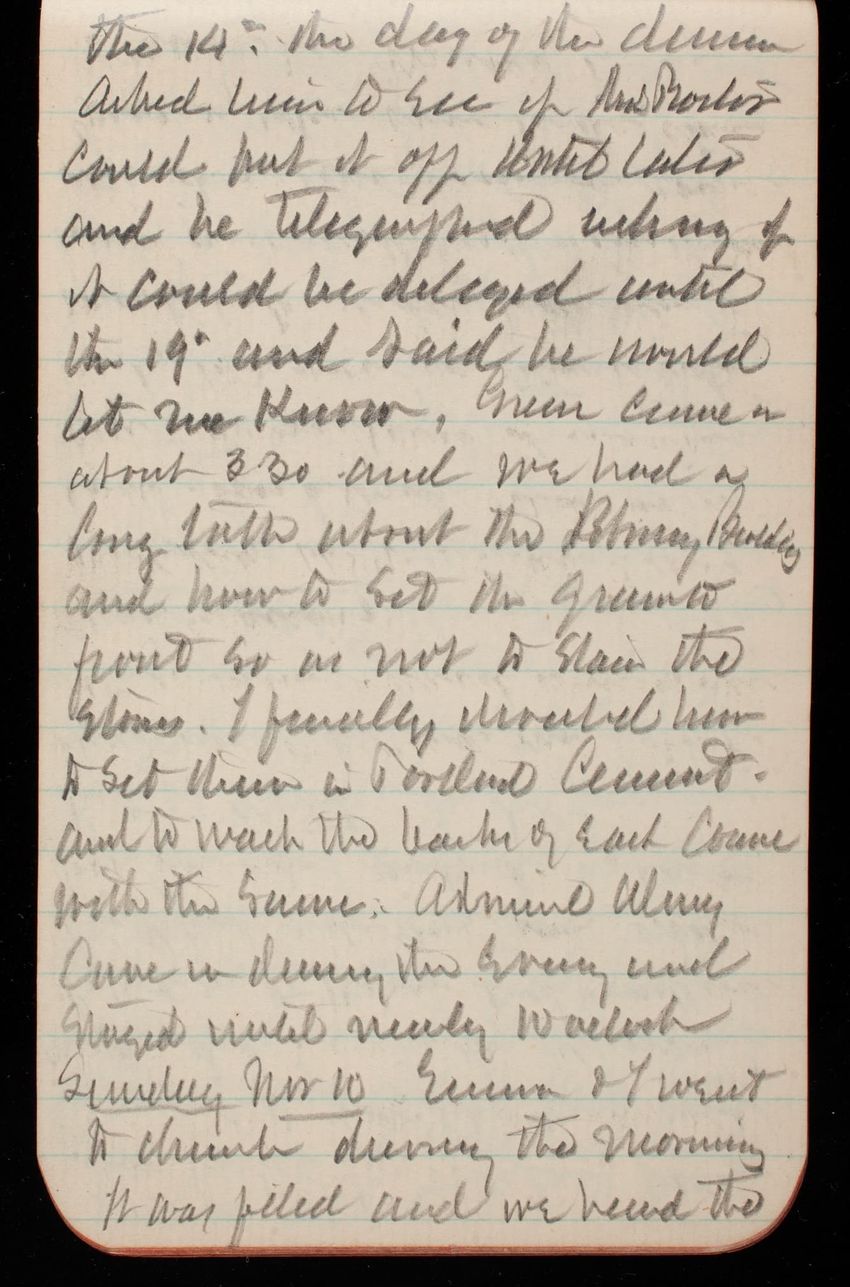 the 14". the day of the dinner
Asked him to see if Mr Proctor
could put it off until later
and he telegraphed asking if
it could be delayed until
the 19" and said he would
let me know, Green came in
about 3 30 and we had a
long talk about the Library Building
and how to set the granite
front so as not to stain the
stones. I finally directed him
to set them in Portland Cement.
and to wash the backs of each course
with the same. Admiral Almy
came in during the Evening and
stayed until nearly 10 oclock
Sunday Nov 10 Emma & I went
to church during the morning
It was filled and we heard the